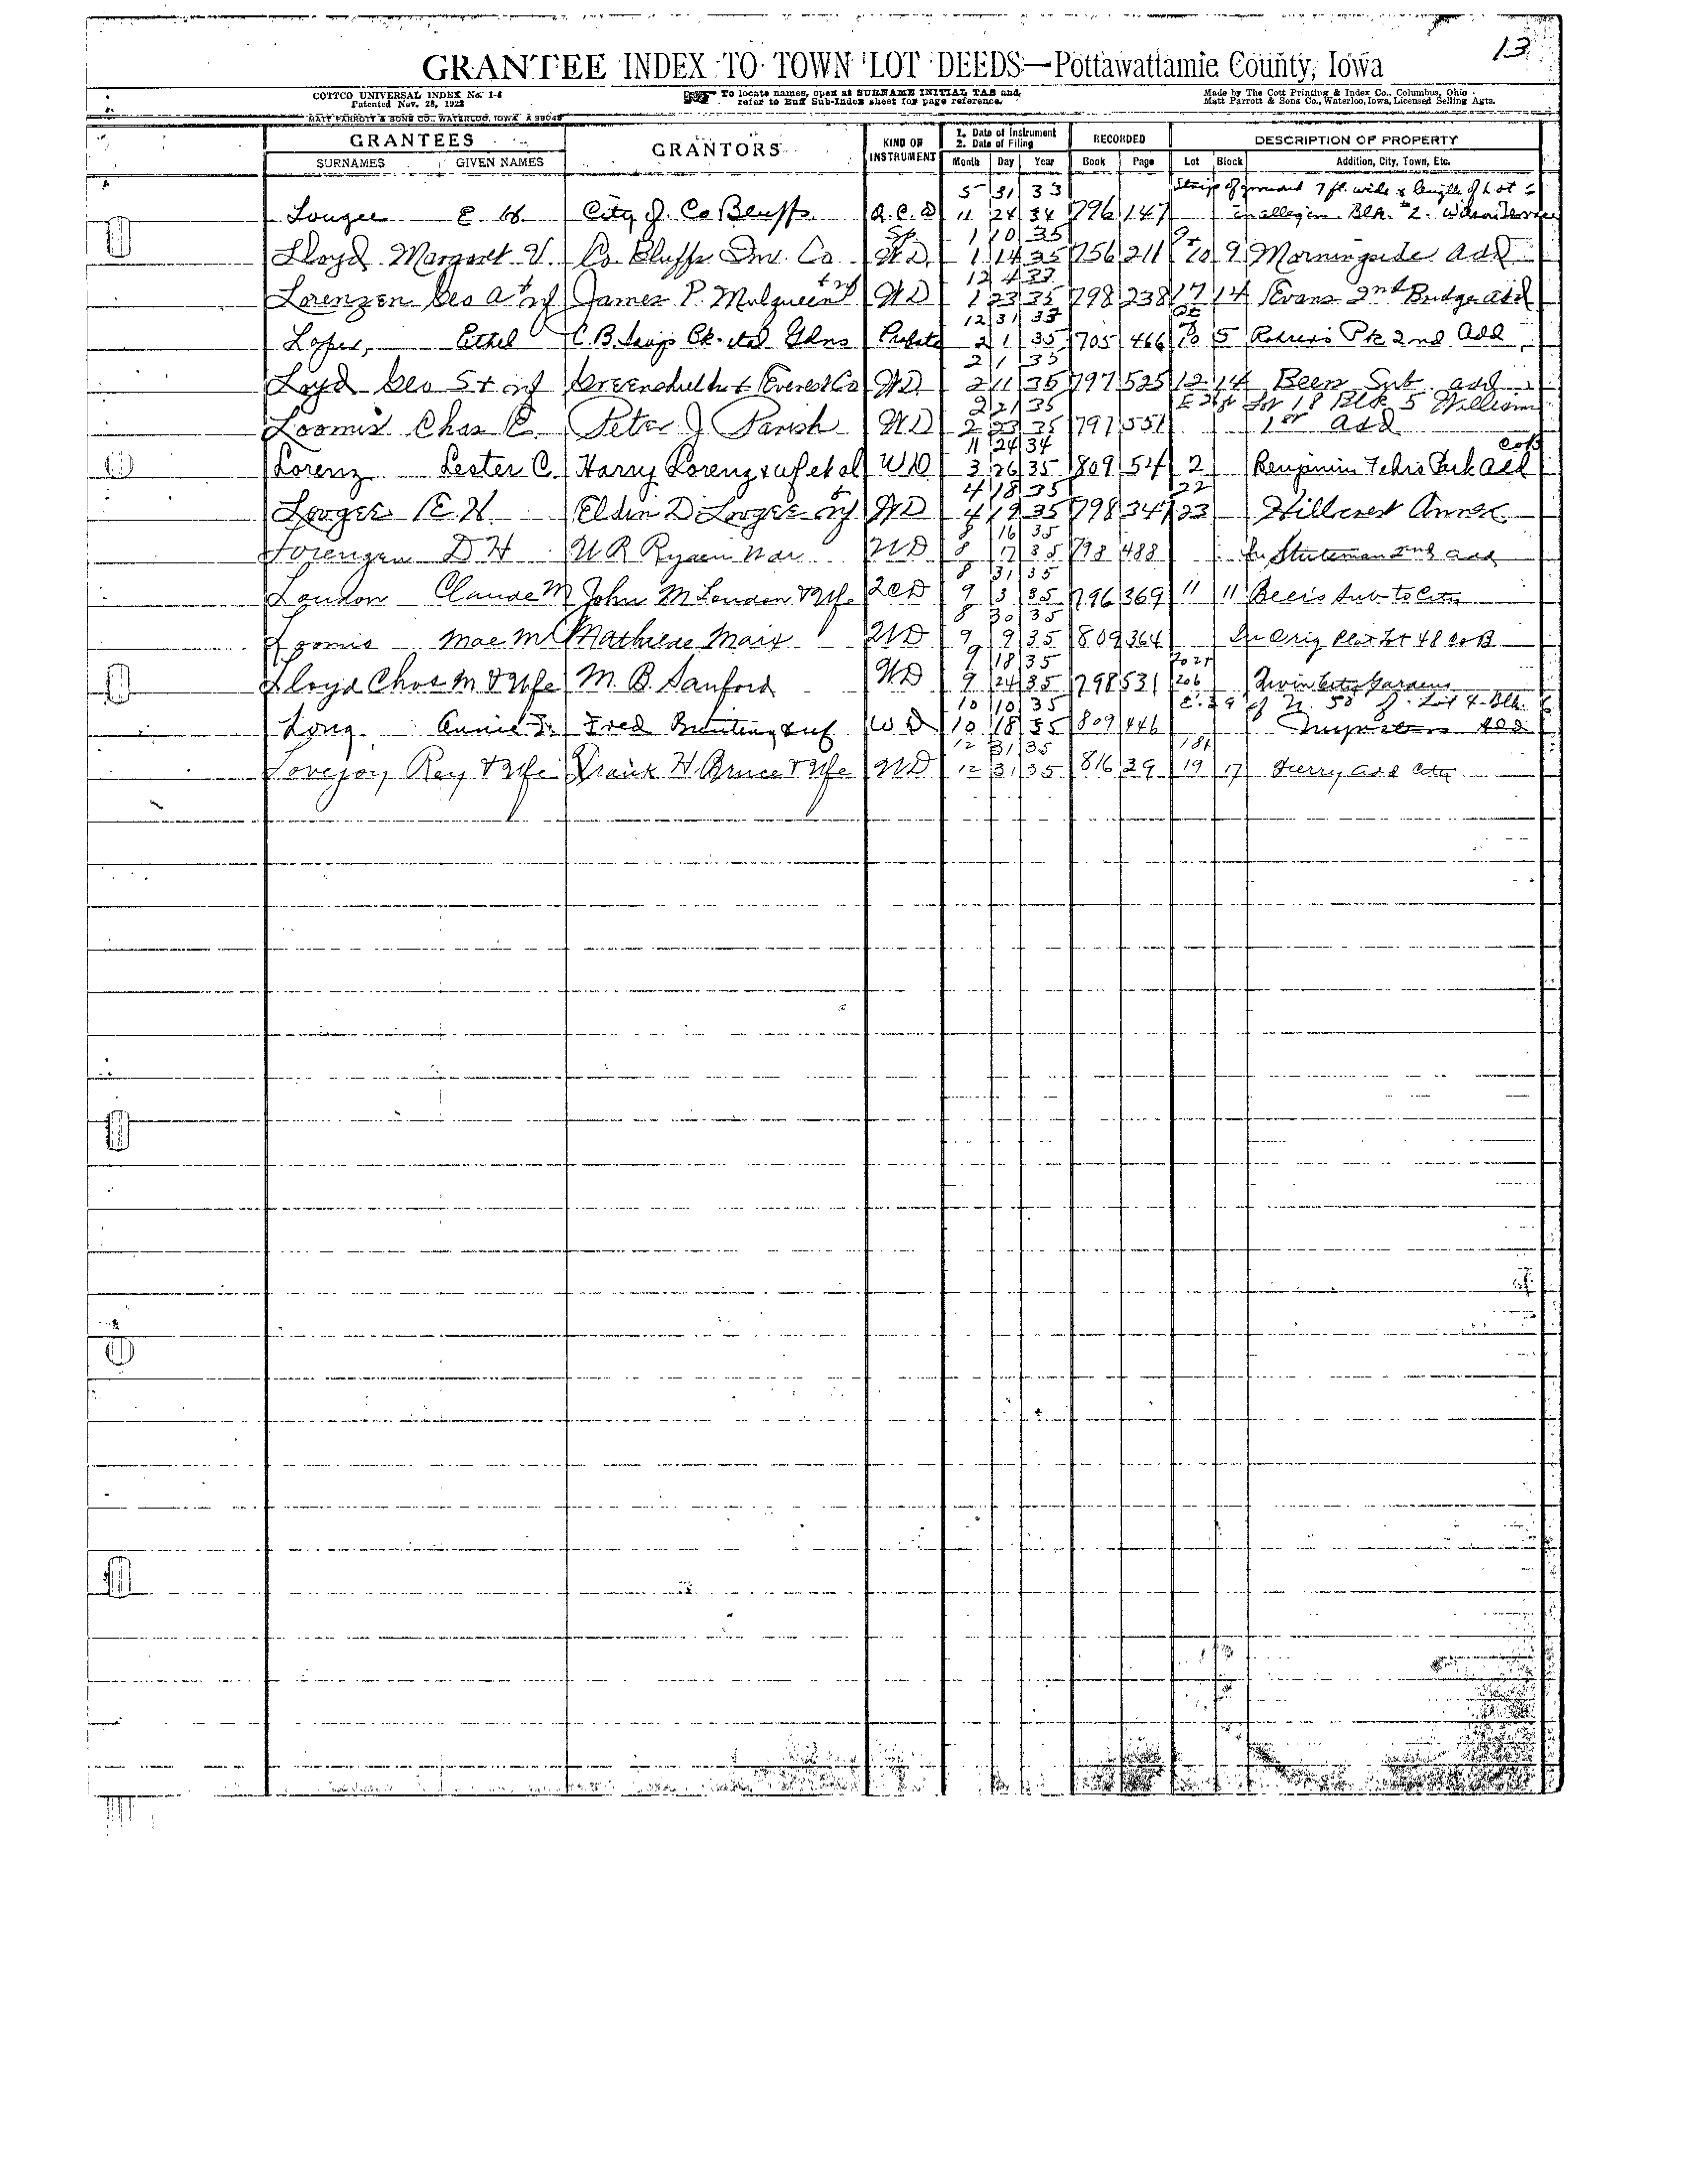 13
GRANTEE INDEX TO TOWN LOT DEEDS—Pottawattamie County, Iowa
COTTCO UNIVERSAL INDEX No. 1-I
Patented Nov. 28, 1922
MATT PARROTT & SONS CO., WATERLOO, IOWA
To locate names, open at SURNAME INITIAL TAB and
refer to Buff Sub-Index sheet for page reference.
Made by The Cott Printing & Index Co., Columbus, Ohio
Matt Parrott & Sons Co., Waterloo, Iowa, Licensed Selling Agts.
GRANTEES GRANTORS KIND OF INSTRUMENT 1. Date of Instrument 2. Date of Filing RECORDED DESCRIPTION OF PROPERTY
SURNAMES GIVEN NAMES Month Day Year Book Page Lot Block Addition, City, Town, Etc.
5 31 33 Strip of ground 7 ft. wide & length of Lot
Lougee E. H. City of Co Bluffs Q.C.D 11 24 34 796 147 in alley in Blk. #2.
Sp. 1 10 35 9
Lloyd Margaret V. Co. Bluffs Inv. Co. WD 1 14 35 756 211 10 9 Morningside Add
12 4 33
Lorenzen Geo A + wf James P. Mulqueen + wf WD 1 23 35 798 238 17 14 Evans 2nd Bridge Add
12 31 35
Loper, Ethel C.B. Savgs Bk. etal Gdns Probate 2 1 35 705 466 5 Pk 2nd Add
2 1 35
Loyd Geo S + wf Greenshields + Everest Co WD 2 11 35 797 525 12 14 Beers Sub. add
2 21 35 Lot 18 Blk 5 William
Loomis Chas E. Peter J Parish WD 2 23 35 797 551 1st Add
11 24 34 CoB
Lorenz Lester C. Harry Lorenz & wf et al WD 3 26 35 809 54 2 Benjamin Fehrs Park Add
4 18 35 22
Lougee E. H. Eldin D Lougee + wf WD 4 19 35 798 347 23 Hillcrest Annex
8 16 35
Lorenzen D H WD 8 17 35 798 488 In Stutsman 2nd add
8 31 35
Loudon Claude M John M Loudon & Wife QCD 9 3 35 796 369 11 11 Beers Sub to City
8 30 35
Loomis Mae M Mathilde WD 9 9 35 809 364 In Orig Plat Lot 48 Co B
9 18 35
Lloyd Chas M & Wife M. B. Sanford WD 9 24 35 798 531 206 Twin City Gardens
10 10 35 of N. 50 of Lot 4 Blk. 6
Long Annie Fred Bunting & wf WD 10 18 35 809 446 Add
12 31 35 18+
Lovejoy Ray & Wife Frank H Bruce & Wife WD 12 31 35 816 29 19 17 Ferry add City